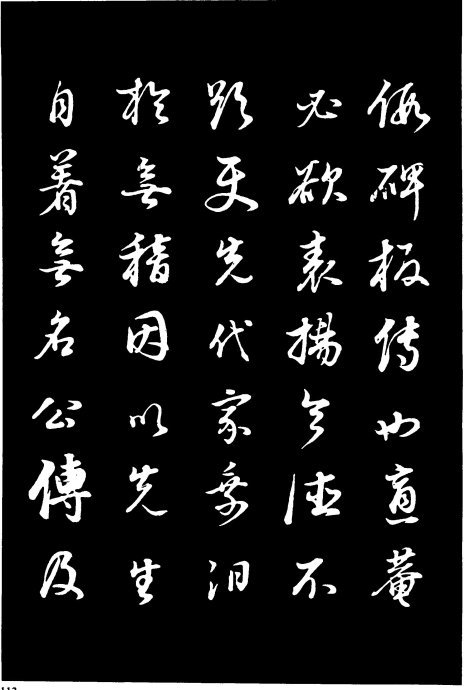 假碑板傳也菴
必欲表揚令德不
更先代家乘汨
於無稽因以先生
自著無名公傳及
113